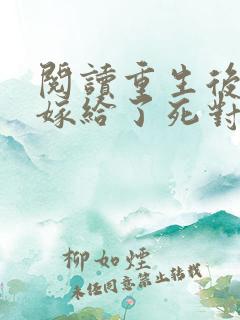 閱讀重生後
嫁給了死對
柳如煙
未經同意禁止轉載